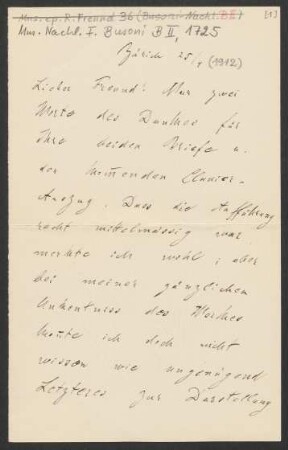 Mus. ep. R. Freund 36 (Busoni-Nachl. B II) [1]
Mus. Nachl. F. Busoni B II, 1725
Zürich 25/ (1912)
Lieber Freund! Nur zwei
Worte des Dankes für
Ihre beiden Briefe u.
den Clavier-
Auszug. Dass die Aufführung
recht mittelmässig war
merkte ich wohl; aber
bei meiner gänzlichen
Unkentniss des Werkes
konnte ich doch nicht
wissen wie ungenügend
Letzteres zur Darstellung